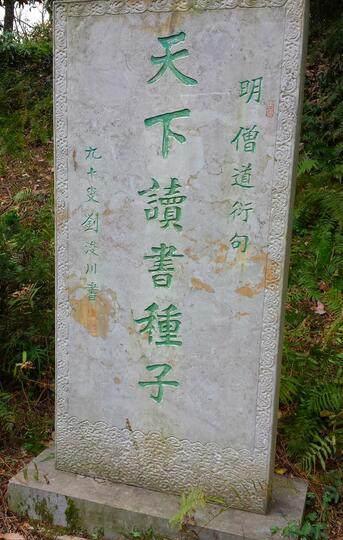 明僧道衍句
天下讀書種子
九十叟劉浚川書